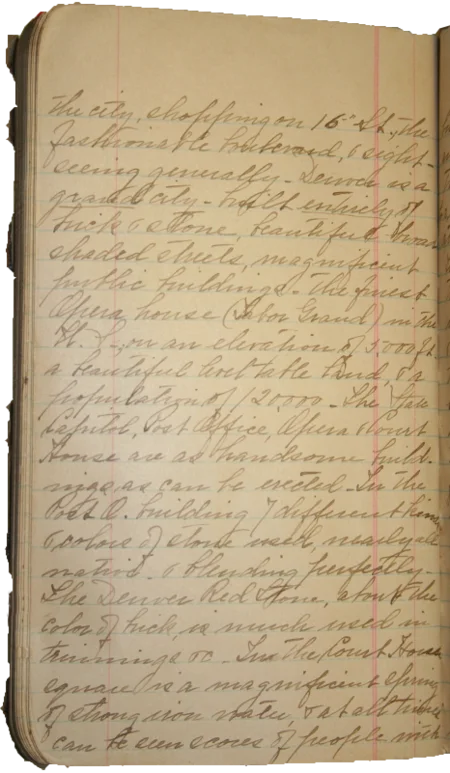 the city, shopping on 16" St., the
fashionable boulevard, & sight-
seeing generally - Denver is a
grand city - built entirely of
brick & stone, beautiful broad
shaded streets, magnificent
public buildings - the finest
Opera house (Tabor Grand) in the
U. S., on an elevation of 5000 ft
a beautiful level table land, & a
population of 120,000 - The State
Capitol, Post Office, Opera & Court
House are as handsome build-
ings as can be erected - In the
Post O. building 7 different kinds
& colors of stone used, nearly all
native - & blending perfectly -
The Denver Red Stone, about the
color of brick, is much used in
trimmings &c - In the Court House
square is a magnificent spring
of strong iron water, & at all times
can be seen scores of people with